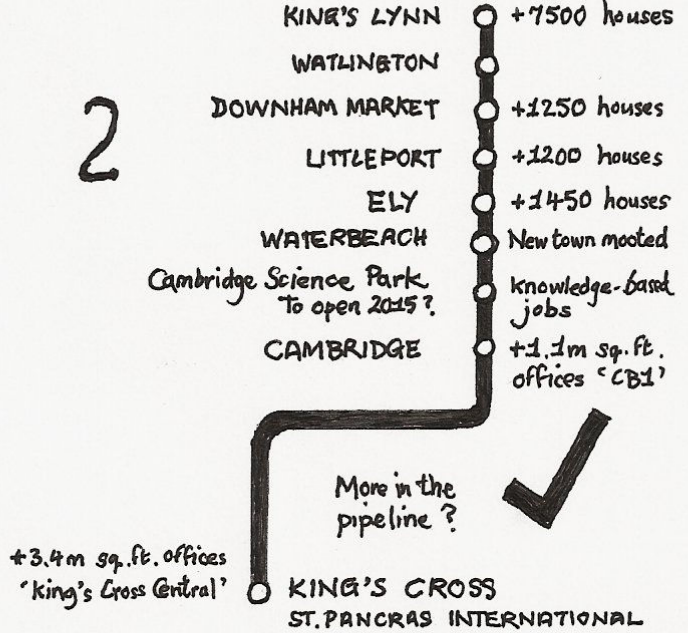 KING'S LYNN +7500 houses
WATLINGTON
2
DOWNHAM MARKET +1250 houses
LITTLEPORT +1200 houses
ELY +1450 houses
WATERBEACH New town mooted
Cambridge Science Park
To open 2015?
knowledge-based
jobs
CAMBRIDGE
+1.1m sq.ft.
offices 'CB1'
More in the
pipeline?
+3.4m sq.ft. offices
'King's Cross Central'
KING'S CROSS
ST. PANCRAS INTERNATIONAL